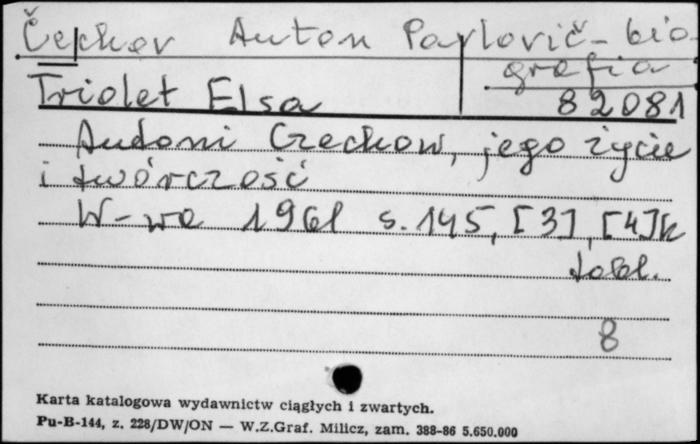 Čechov Anton Pavlovič - bio-
grafia
Triolet Elsa 82081
Antoni Czechow, jego życie
i twórczość
W-wa 1961 s. 145, [3], [4]k
tabl.
8
Karta katalogowa wydawnictw ciągłych i zwartych.
Pu-B-144, z. 228/DW/ON — W.Z.Graf. Milicz, zam. 388-86 5.650.000